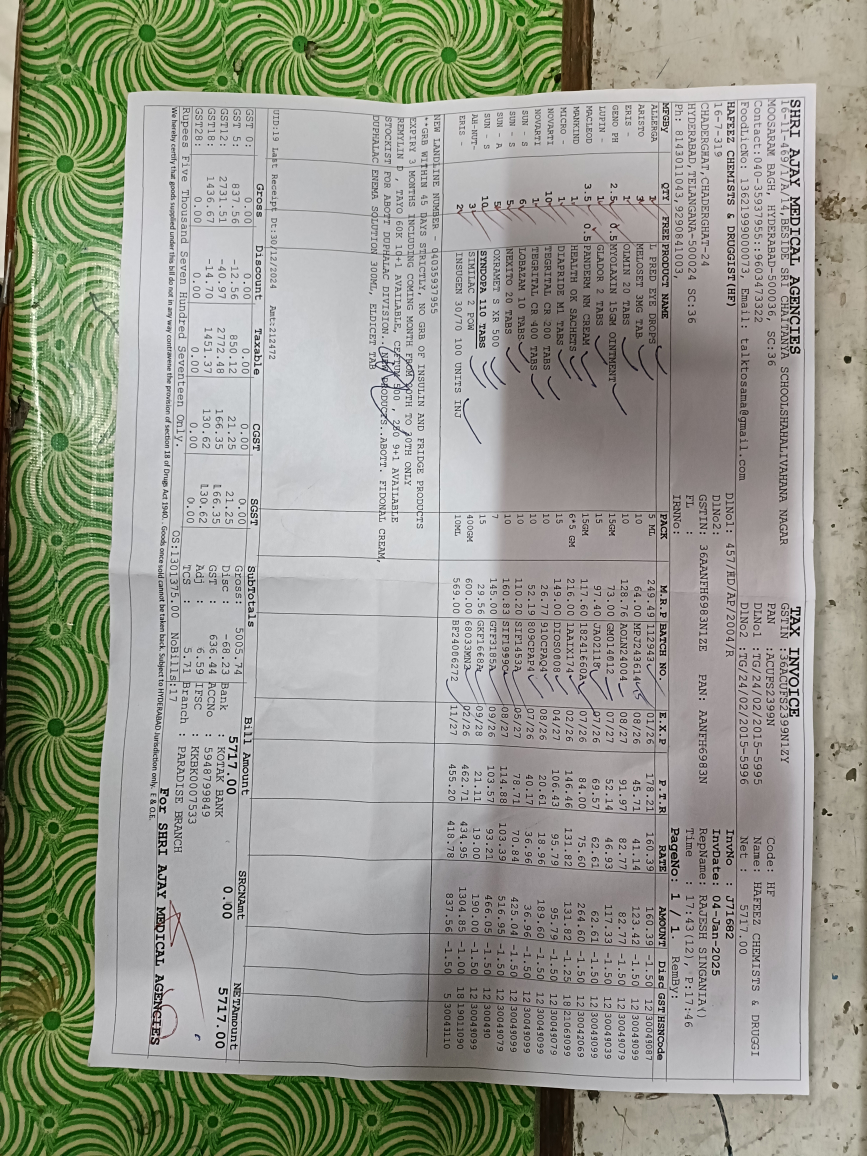 SHRI AJAY MEDICAL AGENCIES TAX INVOICE
16-11-469/7/A,14,BESIDE SRI CHAITANYA SCHOOLSHAHALIVAHANA NAGAR GSTIN :36ACUFS2399N1ZY Code: HF
MOOSARAM BAGH,HYDERABAD-500036, SC:36 PAN :ACUFS2399N Name: HAFEEZ CHEMISTS & DRUGGI
Contact:040-35937955::9603473322 DLNo1 :TG/24/02/2015-5995 Net : 5717.00
FoodLicNo: 13621999000073. Email: talktosama@gmail.com DlNo2 :TG/24/02/2015-5996
HAFEEZ CHEMISTS & DRUGGIST(HF) DlNo1: 457/HD/AP/2004/R InvNo : J71682
16-7-319 DlNo2: InvDate: 04-Jan-2025
CHADERGHAT,CHADERGHAT-24 GSTIN: 36AANFH6983N1ZE PAN: AANFH6983N RepName: RAJESH SINGANIA()
HYDERABAD,TELANGANA-500024 SC:36 FL : Time : 17:43(12), P:17:46
Ph: 8143011043,9290841003, IRNNo: PageNo: 1 / 1. RemBy:
MFGBy QTY FREE PRODUCT NAME PACK M.R.P BATCH NO. E.X.P P.T.R RATE AMOUNT Disc GST HSNCode
ALLERGA 1 L PRED EYE DROPS 5 ML 249.49 112943 01/26 178.21 160.39 160.39 -1.50 12 30049087
ARISTO 3 MELOSET 3MG TAB 10 64.00 MPJ243614 08/26 45.71 41.14 123.42 -1.50 12 30049099
ERIS - 1 OLMIN 20 TABS 10 128.76 AOLN24004 08/27 91.97 82.77 82.77 -1.50 12 30049079
GENO PH 2.5 0.5 MYOLAXIN 15GM OINTMENT 15GM 73.00 GM014012 07/27 52.14 46.93 117.33 -1.50 12 30049039
LUPIN - 1 GLADOR 2 TABS 15 97.40 JA02118 07/26 69.57 62.61 62.61 -1.50 12 30049099
MACLEOD 3.5 0.5 PANDERM NM CREAM 15GM 117.60 18241660A 07/26 84.00 75.60 264.60 -1.50 12 30042069
MANKIND 1 HEALTH OK SACHETS 6*5 GM 216.00 1AAIX174 02/26 146.46 131.82 131.82 -1.25 18 21069099
MICRO - 1 DIAPRIDE M1 TABS 15 149.00 DIOS0808 04/27 106.43 95.79 95.79 -1.50 12 30049079
NOVARTI 10 TEGRITAL CR 200 TABS 10 26.77 910CPAQ4 08/26 20.61 18.96 189.60 -1.50 12 30049099
NOVARTI 1 TEGRITAL CR 400 TABS 10 52.19 909CPAP4 07/26 40.17 36.96 36.96 -1.50 12 30049099
SUN - S 6 LOBAZAM 10 TABS 10 110.21 05/27 78.71 70.84 425.04 -1.50 12 30049099
SUN - S 5 NEXITO 20 TABS 10 160.83 08/27 114.88 103.39 516.95 -1.50 12 30049099
SUN - A 5 OXRAMET S XR 500 7 145.00 GTF3185A 09/26 103.57 93.21 466.05 -1.50 12 30049079
SUN - S 10 SYNDOPA 110 TABS 15 29.56 GKF1668A 09/28 21.11 19.00 190.00 -1.50 12 300490
AB-NUT- 3 SIMILAC 2 POW 400GM 600.00 68033MN3 02/26 462.71 434.95 1304.85 -1.00 18 19011090
ERIS - 2 INSUGEN 30/70 100 UNITS INJ 10ML 569.00 BF24006272 11/27 455.20 418.78 837.56 -1.50 5 30043110
NEW LANDLINE NUMBER - 04035937955
**GRB WITHIN 45 DAYS STRICTLY, NO GRB OF INSULIN AND FRIDGE PRODUCTS
EXPIRY 3 MONTHS INCLUDING COMING MONTH FROM 20TH TO 30TH ONLY
REMYLIN D , TAYO 60K 10+1 AVAILABLE, CEFTUM 500 , 250 9+1 AVAILABLE
STOCKIST FOR ABOTT DUPHALAC DIVISION..(NEW PRODUCTS..ABOTT. FIDONAL CREAM,
DUPHALAC ENEMA SOLUTION 300ML, ELDICET TAB
UID:19 Last Receipt Dt:30/12/2024 Amt:212472
Gross Discount Taxable CGST SGST SubTotals Bill Amount SRCNAmt NETAmount
GST 0: 0.00 0.00 0.00 0.00 0.00 Gross: 5005.74 5717.00 0.00 5717.00
GST 5: 837.56 -12.56 850.12 21.25 21.25 Disc : -68.23 Bank : KOTAK BANK
GST12: 2731.51 -40.97 2772.48 166.35 166.35 GST : 636.44 ACCNo : 5948799849
GST18: 1436.67 -14.70 1451.37 130.62 130.62 Adj : 6.59 IFSC : KKBK0007533
GST28: 0.00 0.00 0.00 0.00 0.00 TCS : 5.71 Branch : PARADISE BRANCH
Rupees Five Thousand Seven Hundred Seventeen Only. OS:1301375.00 NoBills:17 For SHRI AJAY MEDICAL AGENCIES
We hereby certify that goods supplied under this bill do not in any way contravene the provision of section 18 of Drugs Act 1940. . Goods once sold cannot be taken back. Subject to HYDERABAD Jurisdiction only. E & O.E.